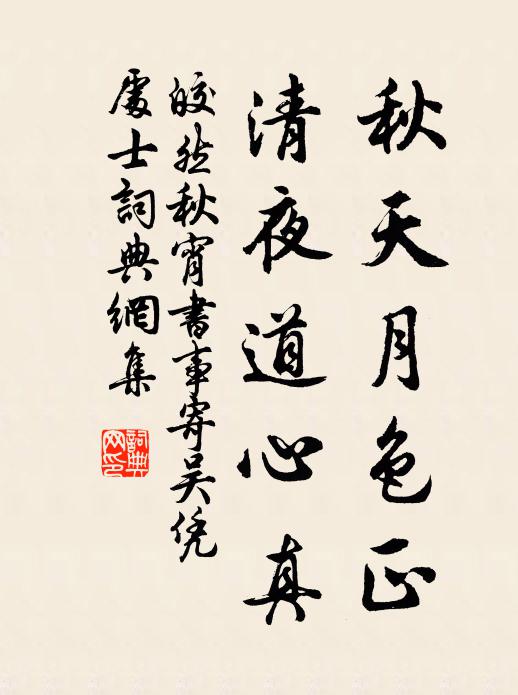 秋天月色正
清夜道心真
皎然秋宵書事寄吴凭
處士詞典網集
詞典
网印